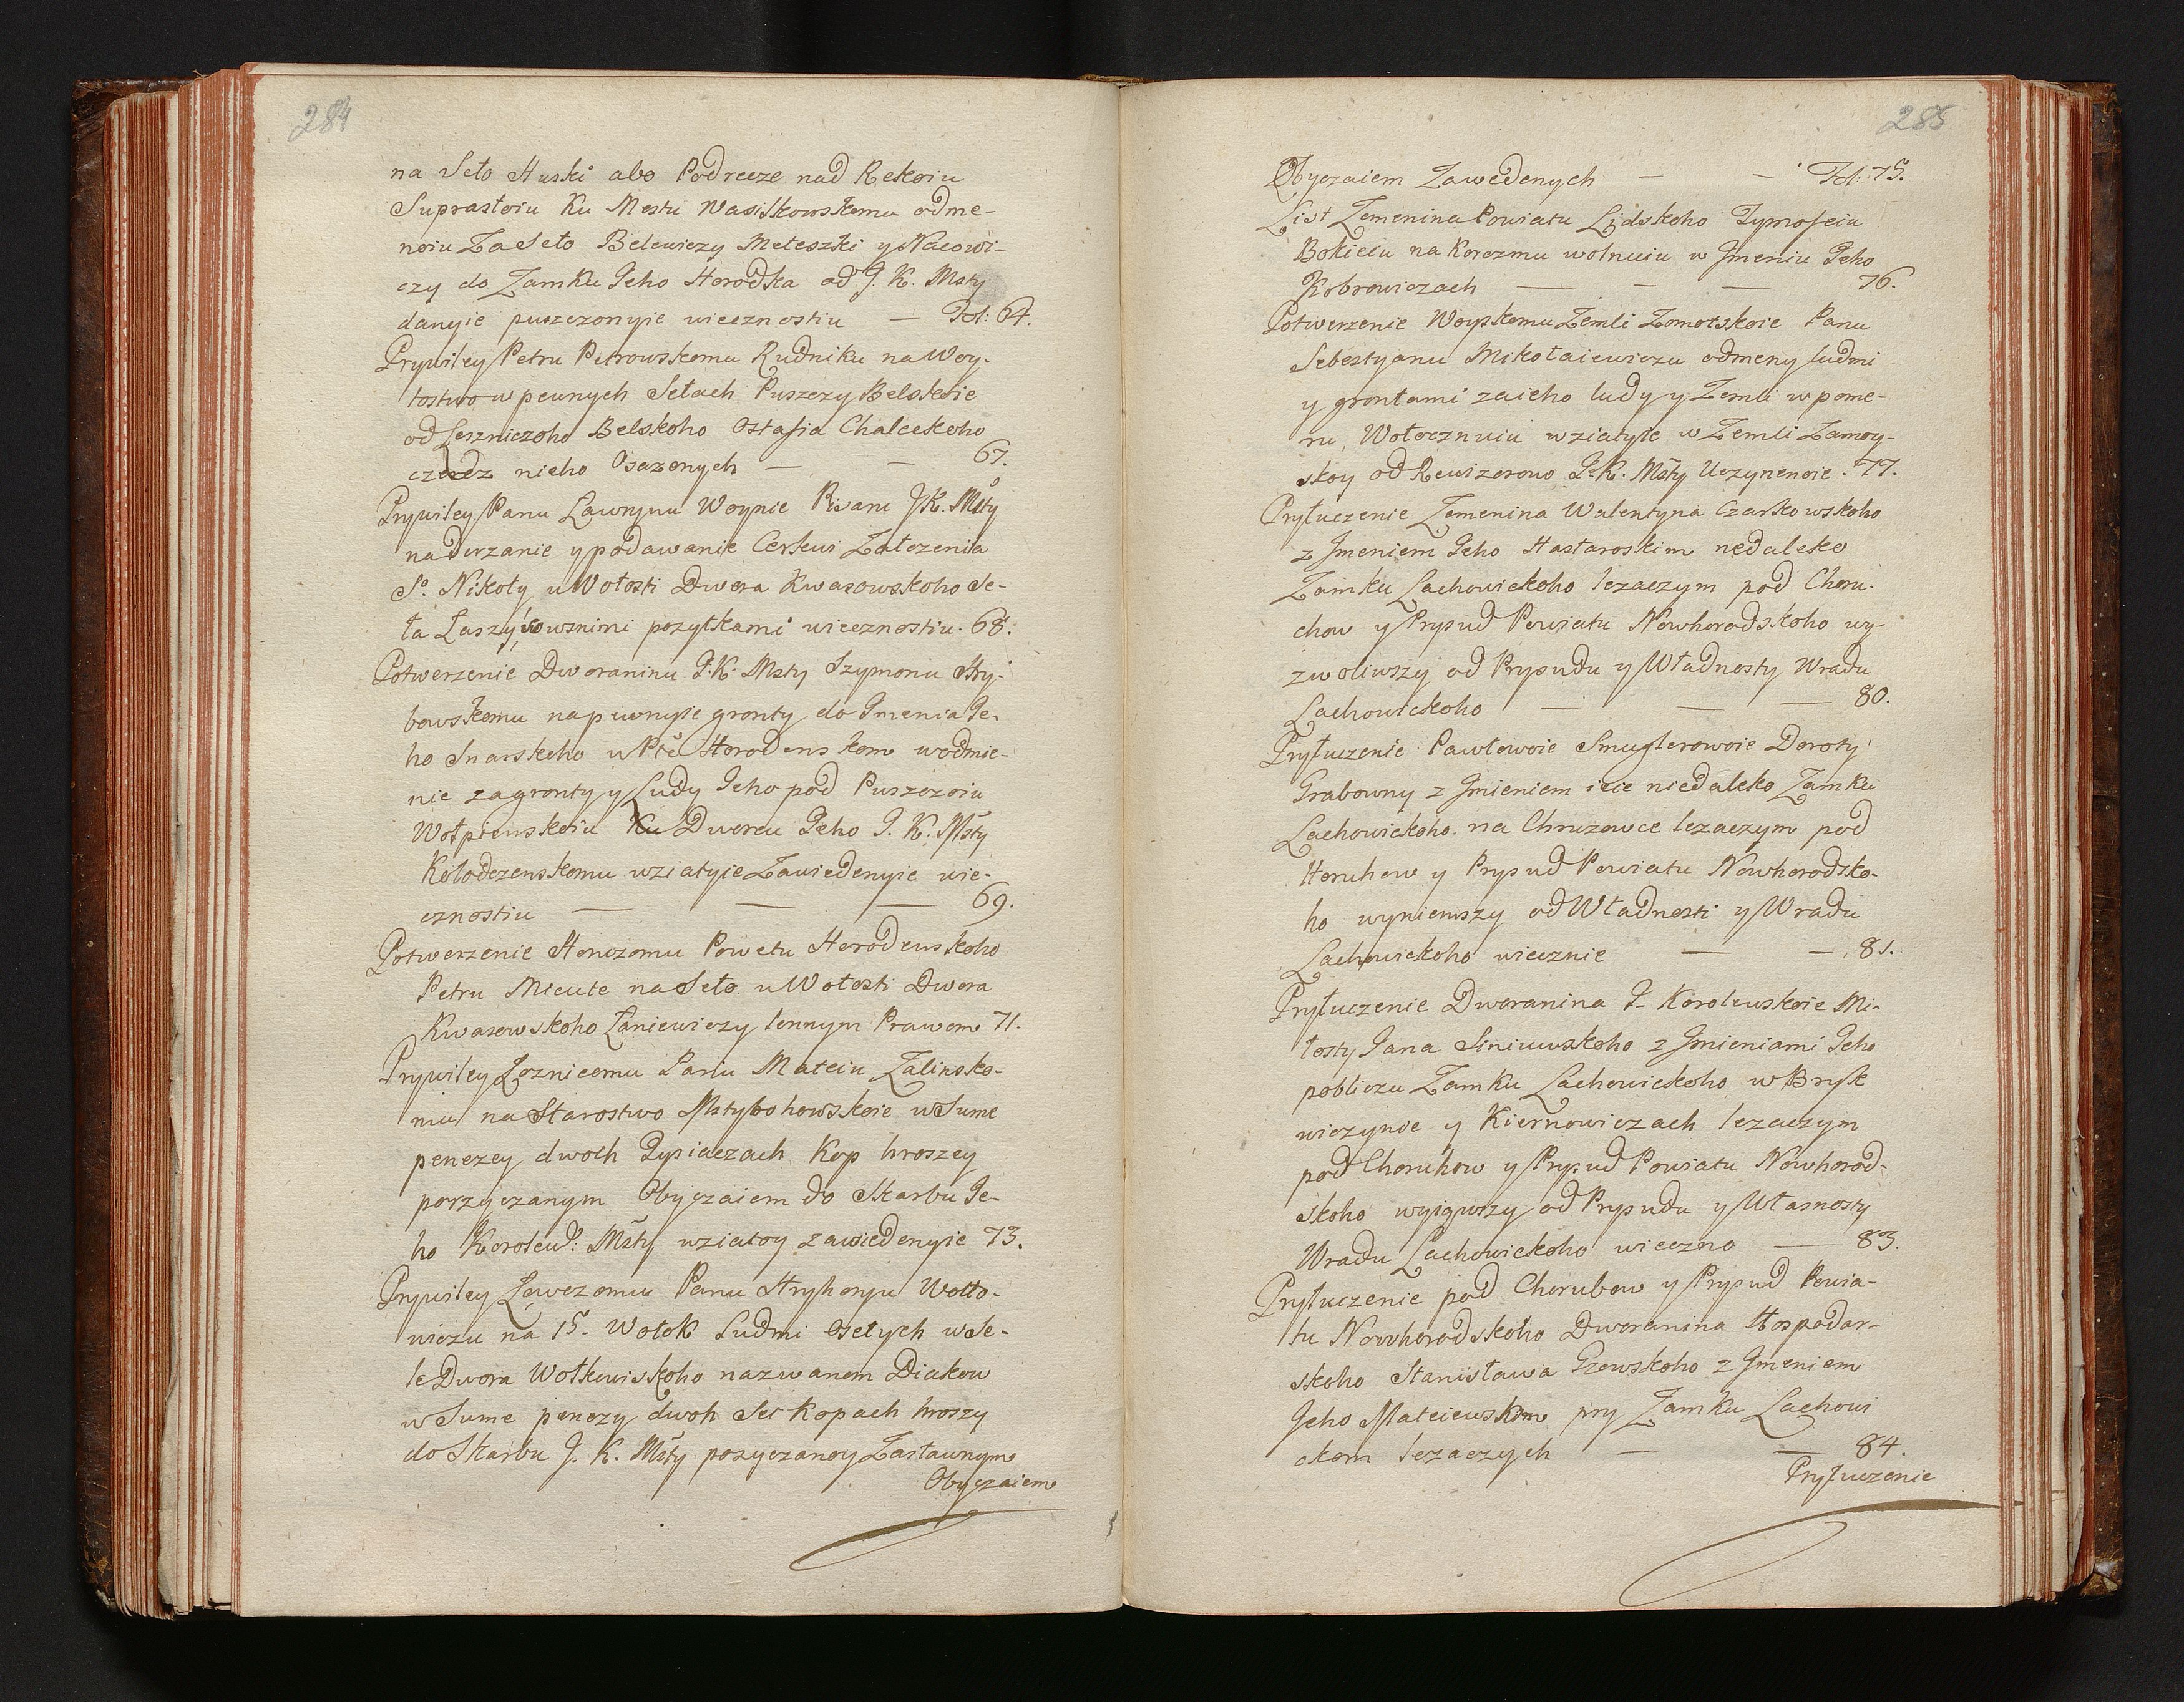 284
na Seło Huski abo Podrecze nad Rekoiu
Suprasłoiu Ku Mestu Wasilkowskomu odme-
noiu Za Seło Belewiczy Meleszki y Nacowi-
czy do Zamku Jeho Horodka od J. K. Msty
danyie puszczonyie wiecznostiu — Fol: 64.
Prywiley Petru Petrowskomu Rudniku na Woy-
tostwo w pewnych Sełach Puszczy Belskoie
od Leszniczoho Belskoho Ostafia Chaleckoho
czerez nieho Osazonych — — 67.
Prywiley Panu Ławrynu Woynie Pisaru J K. Msty
na derzanie y podawanie Cerkwi Załozenia
So. Nikoły u Wołosti Dwora Kwasowskoho Se-
ła Łaszy, so wsnimi pozytkami wiecznostiu. 68.
Potwerzenie Dworaninu J. K. Msty Szymonu Stry-
bowskomu na pewnyie gronty do Jmenia Je-
ho Snarskoho u Pte Horodenskom wodmie-
nie za gronty y Ludy Jeho pod Puszczoiu
Wołpienskoiu Ku Dworcu Jeho J. K. Msty
Kołodezenskomu wziatyie Zawiedenyie wie-
cznostiu — — — 69.
Potwerzenie Honczomu Powetu Horodenskoho
Petru Micute na Seło u Wołosti Dwora
Kwasowskoho Łaniewiczy lennym Prawom 71.
Prywiley Łoznicomu Panu Mateiu Zalinsko-
mu na Starostwo Mstybohowskoie w Sume
penezey dwoch Tysiaczach Kop hroszey
porzyczanym Obyczaiem do Skarbu Je-
ho Korolews: Msty wziatoy zawiedenyie 73.
Prywiley Ławczomu Panu Hryhoryu Wołło-
wiczu na 15. Wołok Ludmi Osełych w Se-
le Dwora Wołkowiskoho nazwanom Diakow
w Sume penezy dwoh Set Kopach hroszy
do Skarbu J. K. Msty pozyczanoy Zastawnym
Obyczaiem
285
Obyczaiem Zawedenych — — Fol: 75.
List Zemenina Powiatu Lidskoho Tymofeiu
Bokieiu na Korczmu wolnuiu w Jmeniu Jeho
Kobrowiczach — — — 76.
Potwerzenie Woyskomu Zemli Zomotskoie Panu
Sebestyanu Mikołaiewiczu odmeny ludmi
y grontami za ieho ludy y Zemli w pome-
ru Wołocznuiu wziatyie w Zemli Zamoy-
skoy od Rewizorowo J. K. Msty Uczynenoie. 77.
Pryłuczenie Zemenina Walentyna Czarkowskoho
z Jmeniem Jeho Hastaroskim nedaleko
Zamku Lachowickoho lezaczym pod Choru-
chow y Prysud Powiatu Nowhorodskoho wy-
zwoliwszy od Prysudu y Władnosty Wradu
Lachowickoho — — — 80.
Pryłuczenie Pawłowoie Smuglerowoie Doroty
Grabowny z Jmieniem ieie niedaleko Zamku
Lachowickoho na Chruzowce lezaczym pod
Horuhow y Prysud Powiatu Nowhorodsko-
ho wyniemszy od Władnosti y Wradu
Lachowickoho wiecznie — — 81.
Pryłuczenie Dworanina J- Korolewskoie Mi-
łosty Jana Siniuwskoho z Jmieniami Jeho
pobliczu Zamku Lachowickoho w Brysk
wiczynoe y Kiernowiczach lezaczym
pod Choruhow y Prysud Powiatu Nowhorod-
skoho wyiąwszy od Prysudu y Własnosty
Wradu Lachowickoho wieczno — 83.
Pryłuczenie pod Choruhow y Prysud Powia-
tu Nowhorodskoho Dworanina Hospodar-
skoho Stanisława Gzowskoho z Jmeniem
Jeho Mateiewskom pry Zamku Lachowi
ckom lezaczych — — 84.
Pryłuczenie